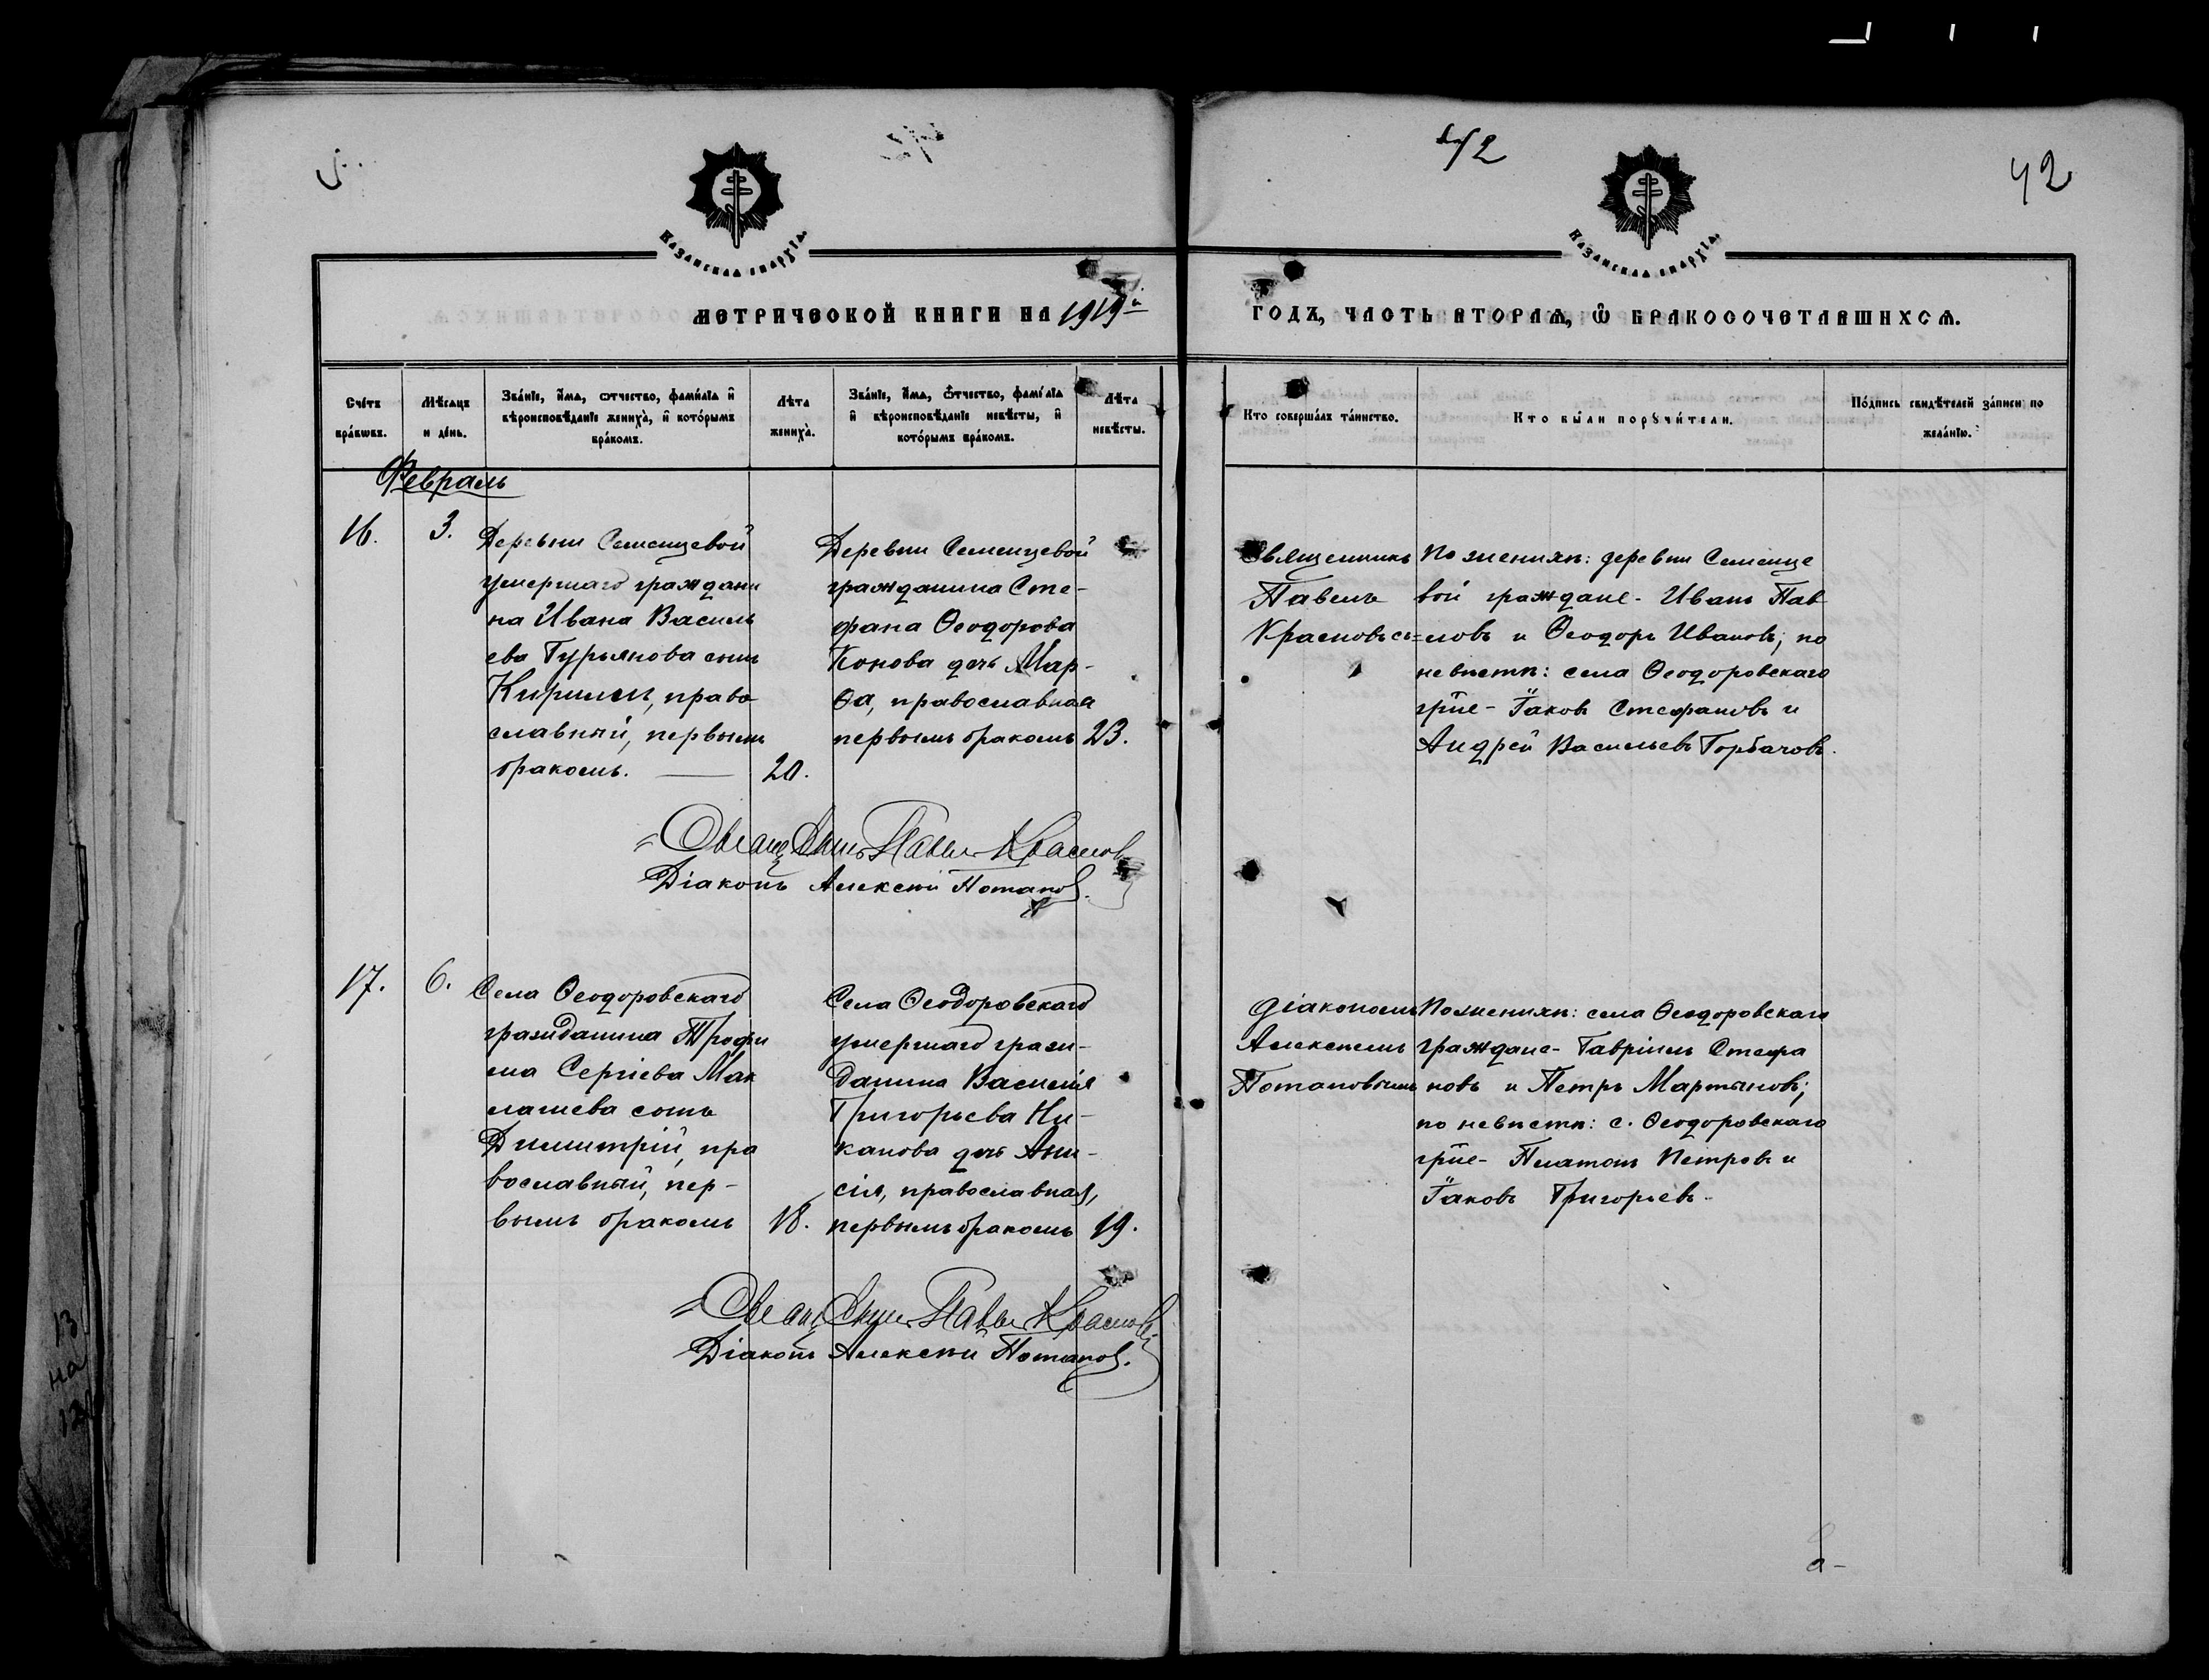 42
42
КАЗАНСКАѦ ЕПАРХІѦ.
КАЗАНСКАѦ ЕПАРХІѦ.
МЕТРИЧЕСКОЙ КНИГИ НА 1919й
ГОДЪ, ЧАСТЬ ВТОРАѦ, Ѿ БРАКОСОЧЕТАВШИХСѦ.
Счётъ браковъ.
Мѣсяцъ и день.
Званіе, имѧ, отчество, фамиліа и вѣроисповѣданіе жениха, и которымъ бракомъ.
Лѣта жениха.
Званіе, имѧ, отчество, фамиліа и вѣроисповѣданіе невѣсты, и которымъ бракомъ.
Лѣта невѣсты.
Кто совершалъ таинство.
Кто были порꙋчители.
Подпись свидѣтелей записи по желанію.
Февраль
16.
3.
Деревни Семенцевой
умершаго граждани
на Ивана Василь
ева Гурьянова сынъ
Кириллъ, право
славный, первымъ
бракомъ. —
20.
Деревни Семенцевой
гражданина Сте-
фана Ѳеодорова
Конова дочь Мар-
ѳа, православная
первымъ бракомъ
23.
Священникъ
Павелъ
Красновъ
По женихѣ: деревни Семенце
вой граждане - Иванъ Пав
ловъ и Ѳеодоръ Ивановъ; по
невѣстѣ: села Ѳеодоровскаго
гр͠не - Іаковъ Стефановъ и
Андрей Васильевъ Горбачовъ.
Священникъ Павелъ Красновъ
Діаконъ Алексѣй Потаповъ.
17.
6.
Села Ѳеодоровскаго
гражданина Трофи
ма Сергіева Мак
лашева сынъ
Димитрій, пра
вославный, пер-
вымъ бракомъ
18.
Села Ѳеодоровскаго
умершаго граж-
данина Василія
Григорьева Ни-
канова дочь Ани-
сія, православная,
первымъ бракомъ
19.
Діакономъ
Алексѣемъ
Потаповымъ
По женихѣ: села Ѳеодоровскаго
граждане - Гавріилъ Стефа
новъ и Петръ Мартыновъ;
по невѣстѣ: с. Ѳеодоровскаго
гр͠не - Платонъ Петровъ и
Іаковъ Григорьевъ.
Священникъ Павелъ Красновъ
Діаконъ Алексѣй Потаповъ.
13
на